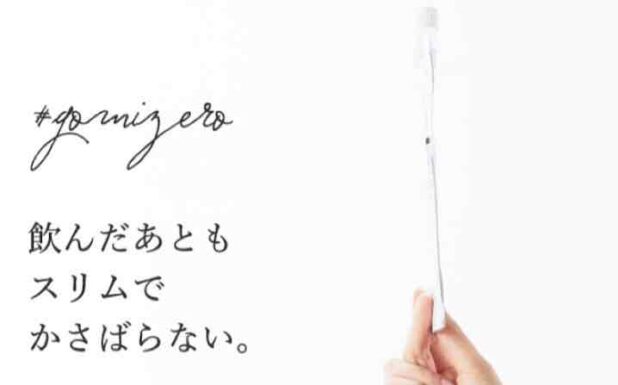 #gomizero
飲んだあとも
スリムで
かさばらない。